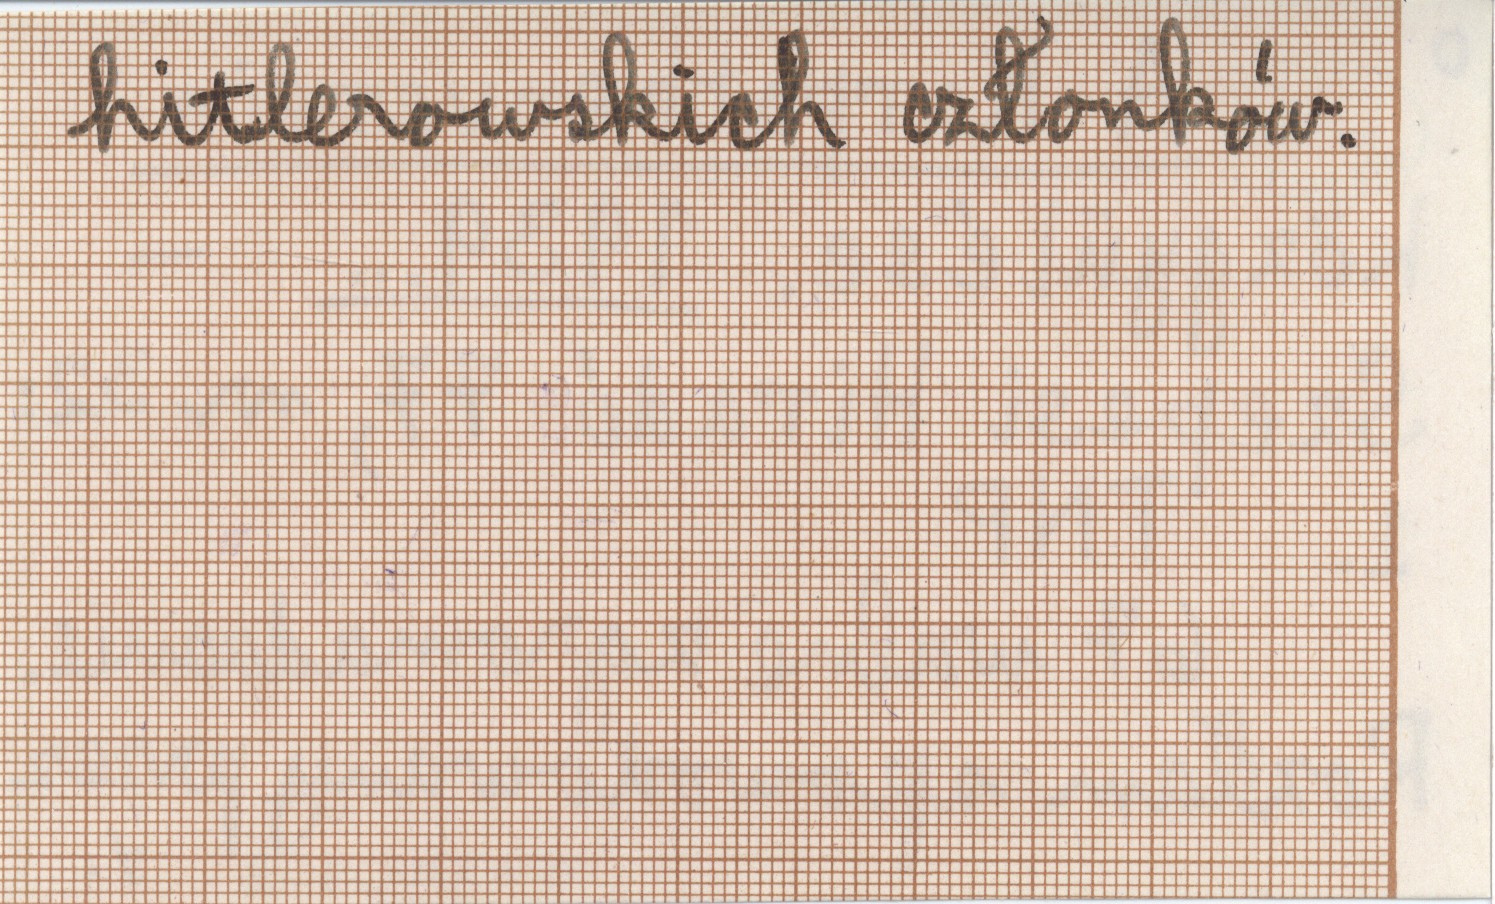 hitlerowskich członków.